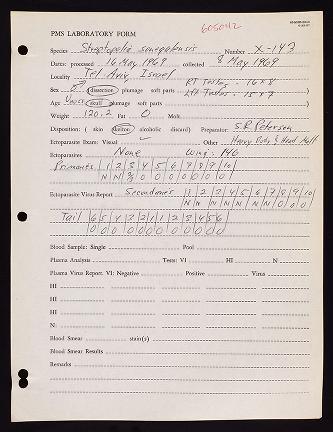 605042
PMS LABORATORY FORM
Species Streptopelia senegalensis Number X-143
Dates: processed 16 May 1969 collected 8 May 1969
Locality Tel Aviv, Israel
Sex ♂ dissection plumage soft parts RT Testes. 16 x 8
Lft Testes. 15 x 7
Age skull plumage soft parts
Weight 120.2 Fat 0 Molt
Disposition: ( skin skeleton alcoholic discard) Preparator: S.R. Peterson
Ectoparasite Exam: Visual Other Heavy Body & Head Molt
Ectoparasites None Wing: 140
Primaries 1 2 3 4 5 6 7 8 9 10
N N 0 0 0 0 0 0 0
Ectoparasite Virus Report Secondaries 1 2 3 4 5 6 7 8 9 10
N N N N N N N 0 0 0
Tail 6 5 4 3 2 1 1 2 3 4 5 6
0 0 0 0 0 0 0 0 0 0 0 0
Blood Sample: Single Pool
Plasma Analysis Tests: VI HI N
Plasma Virus Report. VI: Negative Positive Virus
HI
HI
HI
N:
Blood Smear stain(s)
Blood Smear Results
Remarks